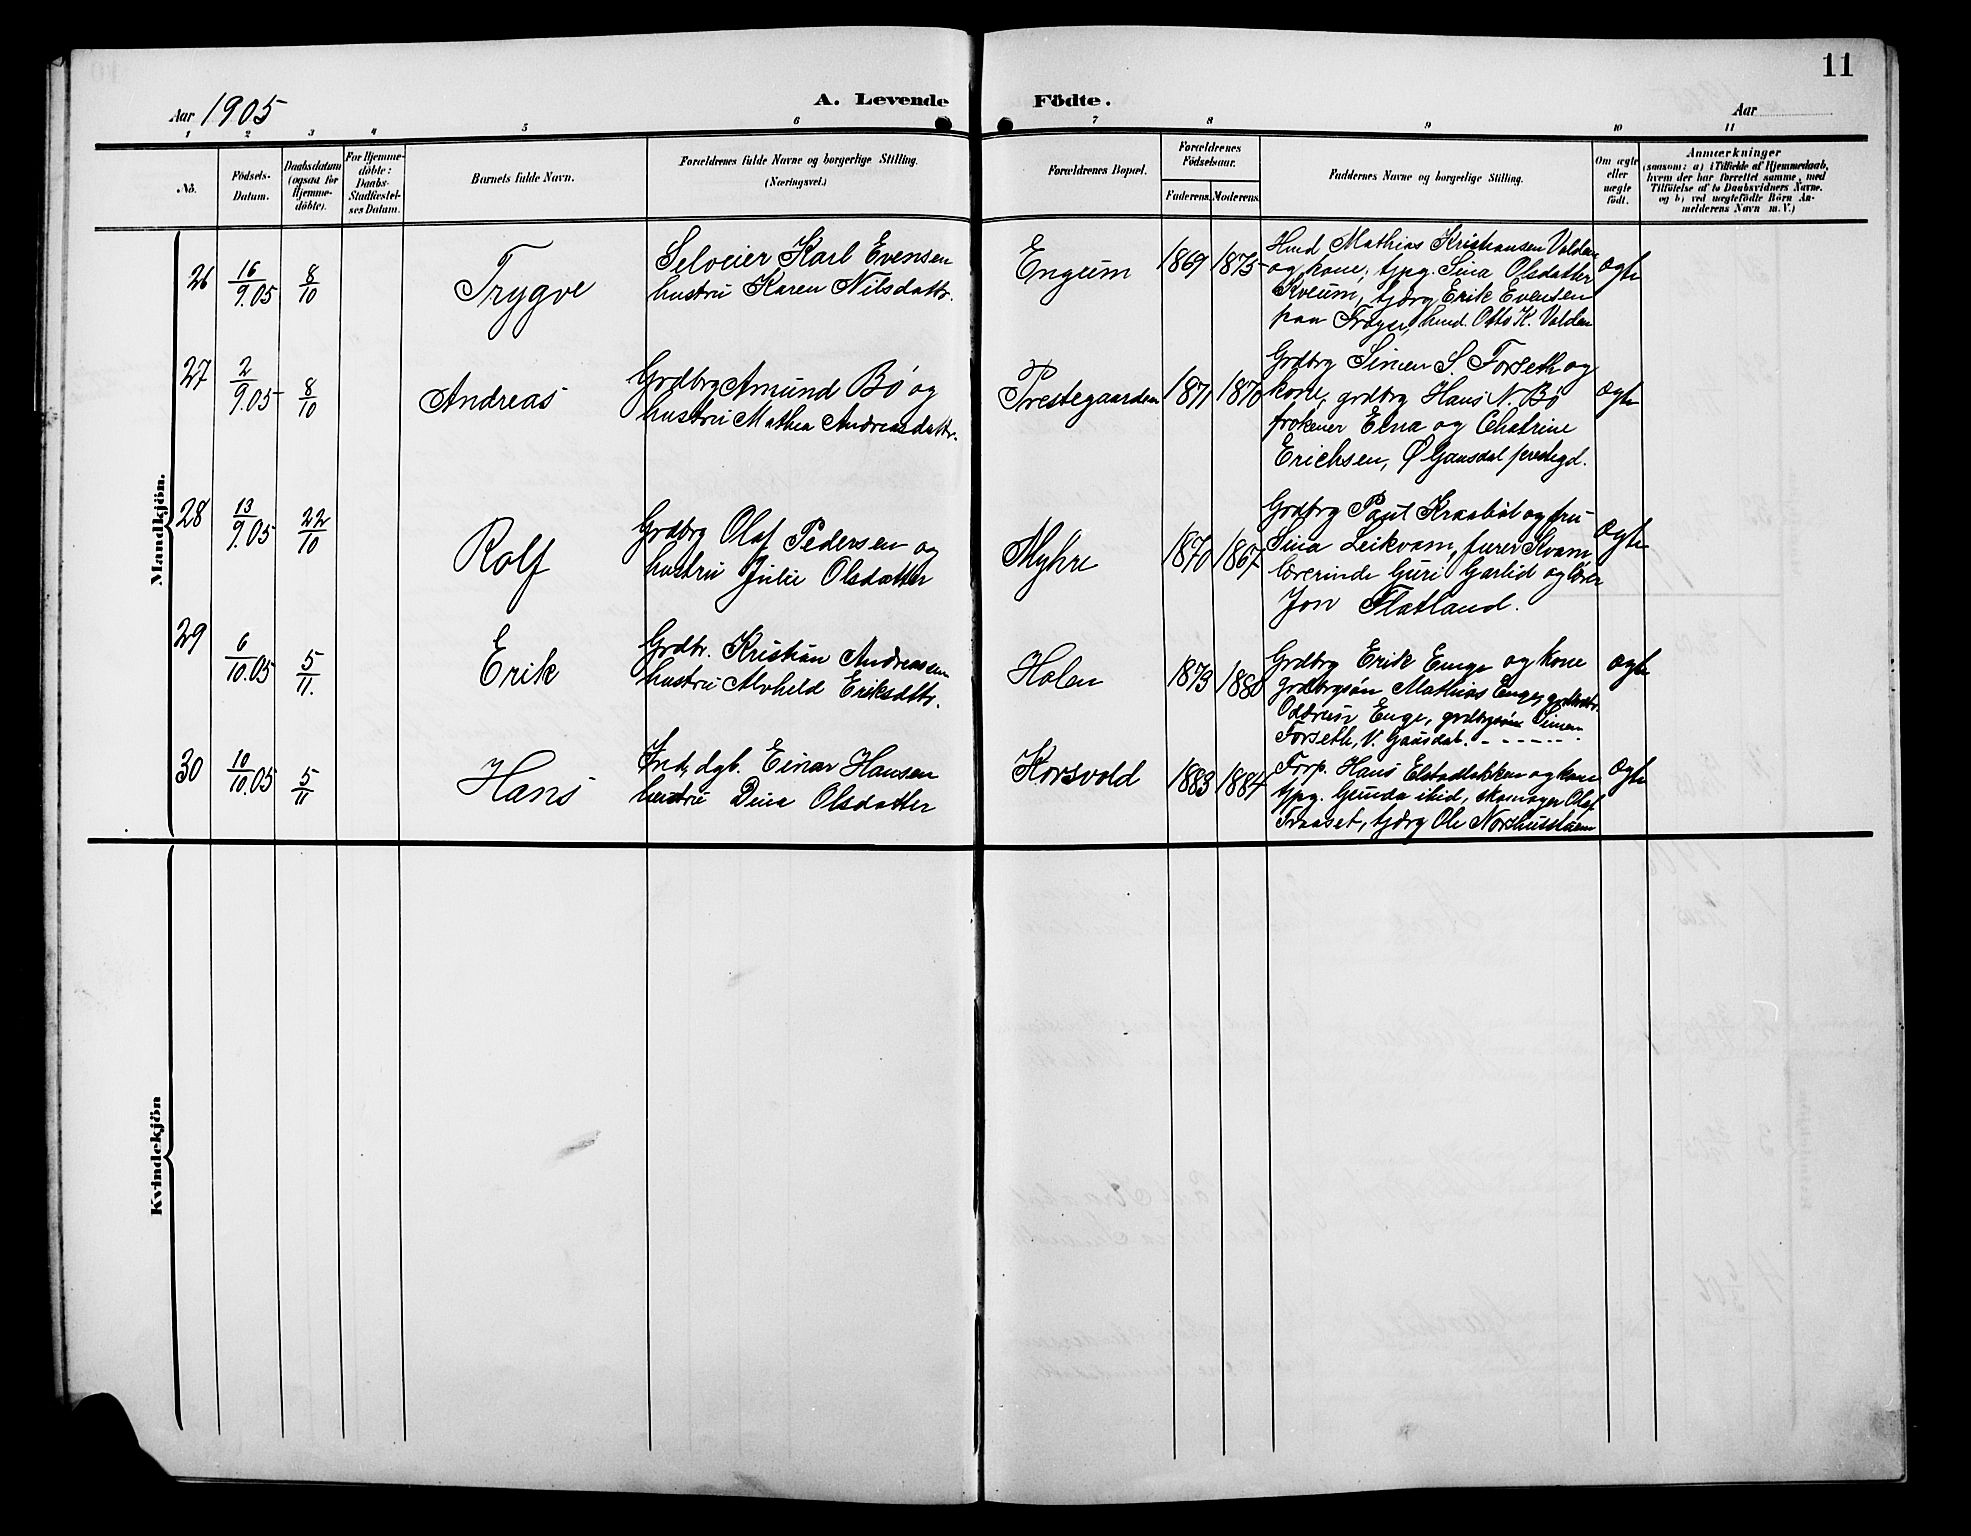 11
Aar 1905
A. Levende Födte.
Aar
1 2 3 4 5 6 7 8 9 10 11
No.
Födsels-
Datum.
Daabsdatum
(ogsaa for
Hjemme-
döbte).
For Hjemme-
döbte:
Daabs-
Stadfæstel-
ses Datum.
Barnets fulde Navn.
Forældrenes fulde Navne og borgerlige Stilling.
(Næringsvei.)
Forældrenes Bopæl.
Forældrenes
Födselsaar.
Faderens. Moderens.
Faddernes Navne og borgerlige Stilling.
Om ægte
eller
uægte
født.
Anmærkninger
(saasom: a) i Tilfælde af Hjemmedaab,
hvem der har forrettet samme, med
Tilføielse af to Daabsvidners Navne.
og b) ved uægtefödte Börn An-
melderens Navn m. V.)
Mandkjön.
26 16/9.05 8/10 Trygve
Selveier Karl Evensen
hustru Karen Nilsdattr.
Engum 1869 1875
Hmd Mathias Kristiansen Volden
og kone, tjpg. Sina Olsdatter
Kveum, tjdrg Erik Evensen
paa Trøger, hmd. Otto K. Volden
ægte
27 2/9.05 8/10 Andreas
Grdbrg Amund Bö og
hustru Mathea Andreasdattr.
Prestegaarden 1871 1870
Grdbrg Simen S. Forseth og
kone, grdbrg Hans N. Bö
frøkener Elna og Chatrine
Erichsen, Ø Gausdal prestegd.
ægte
28 13/9.05 22/10 Rolf
Grdbrg Olaf Pedersen og
hustru Julie Olsdatter
Myhre 1870 1867
Grdbrg Paul Kraabøl og fru
Sina Leikvam, furer Kvam
lærerinde Guri Garlid og lærer
Jon Flatland.
ægte
29 6/10.05 5/11. Erik
Grdbr. Kristian Andreassen
hustru Alvhild Eriksdattr.
Holen 1873 1880
Grdbrg Erik Enge og kone
grdbrgsøn Mathias Enge, grdbrdtr.
Oddrun Enge, grdbrgsøn Simen
Forseth, V. Gausdal.
ægte
30 10/10.05 5/11 Hans
Ind., dgb. Einar Hansen
hustru Dina Olsdatter
Korsvold 1883 1884
Torp. Hans Elstadløkken og kone
tjpg. Gunda ibid, skomager Olaf
Traaset, tjdrg Ole Norshusstuen
ægte
Kvindekjön